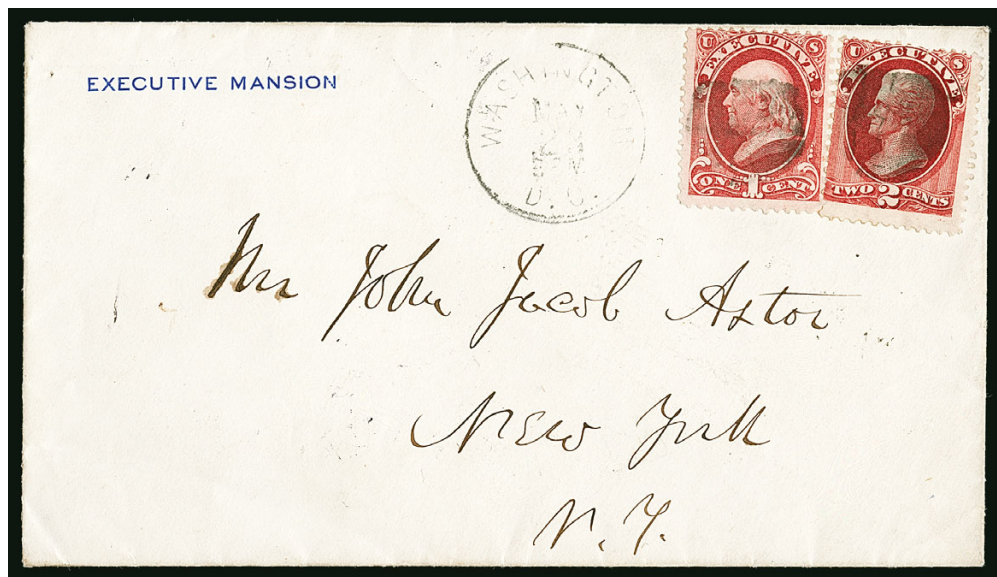 EXECUTIVE MANSION
WASHINGTON
D.C.
U S
EXECUTIVE
ONE 1 CENT
U S
EXECUTIVE
TWO 2 CENTS
Mr John Jacob Astor
New York
N.Y.